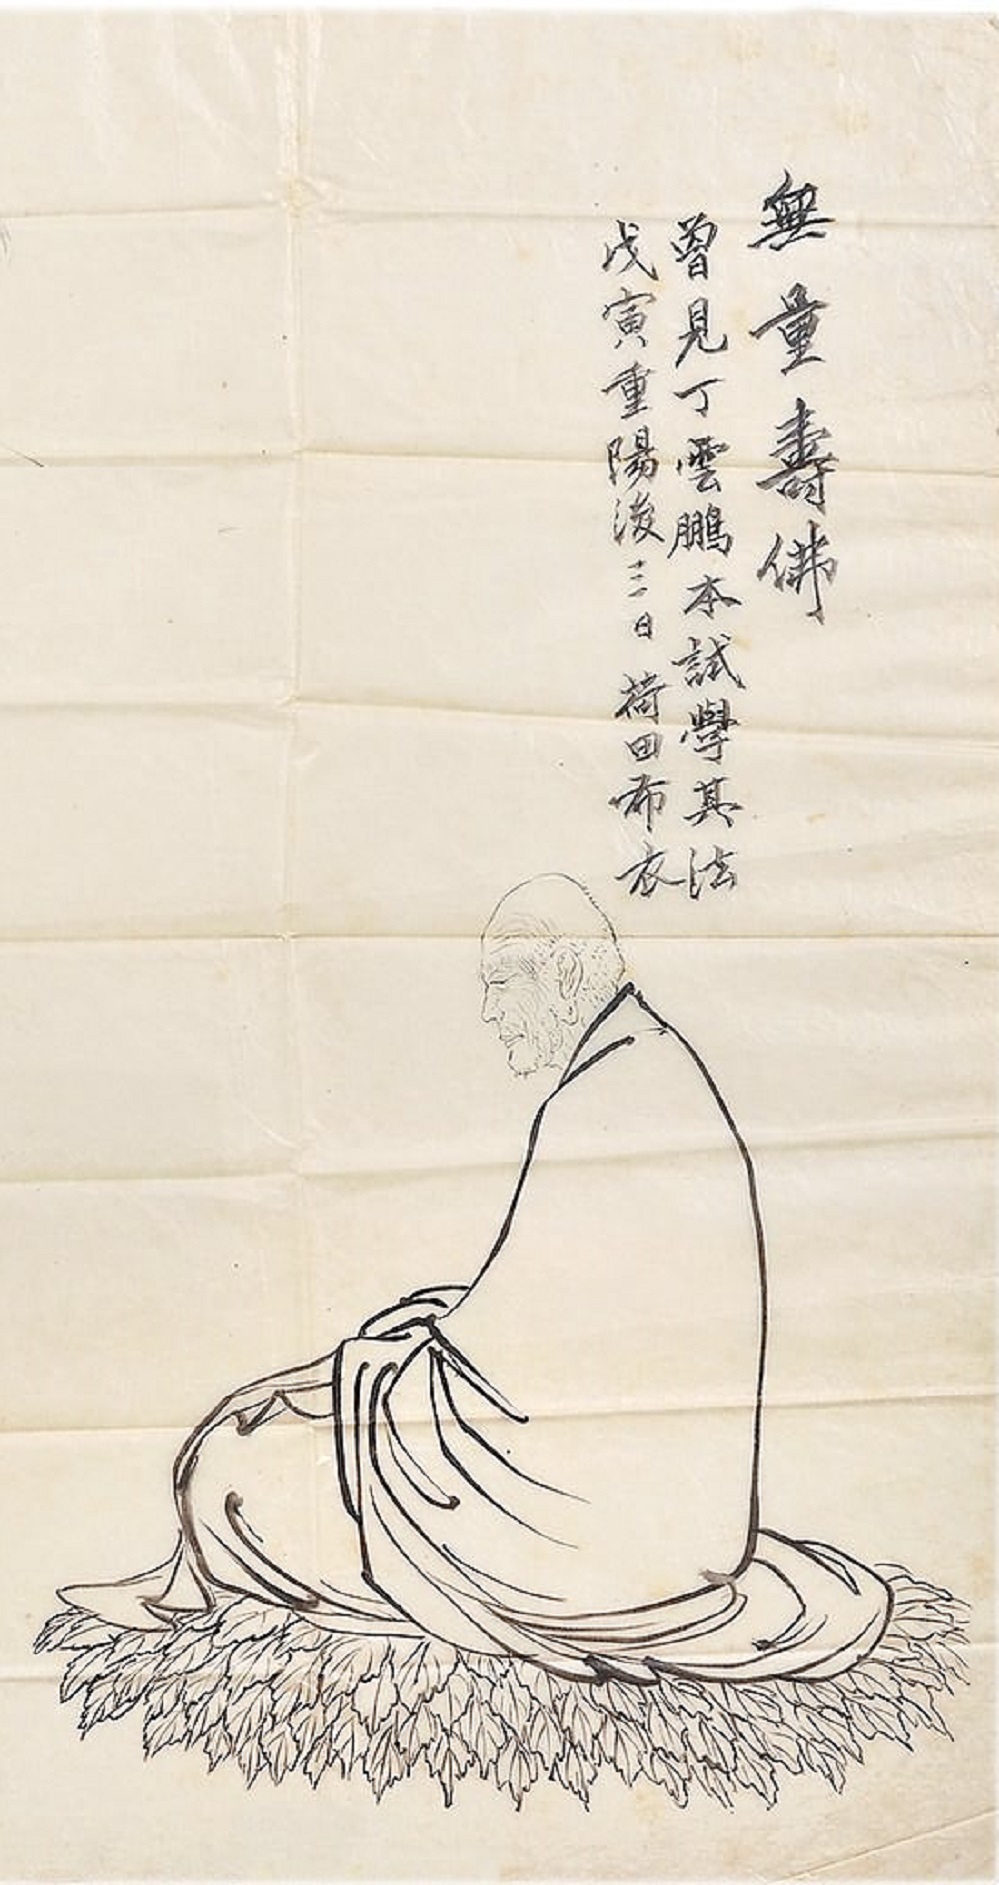 無量壽佛
曾見丁雲鵬本試學其法
戊寅重陽後三日荷田布衣